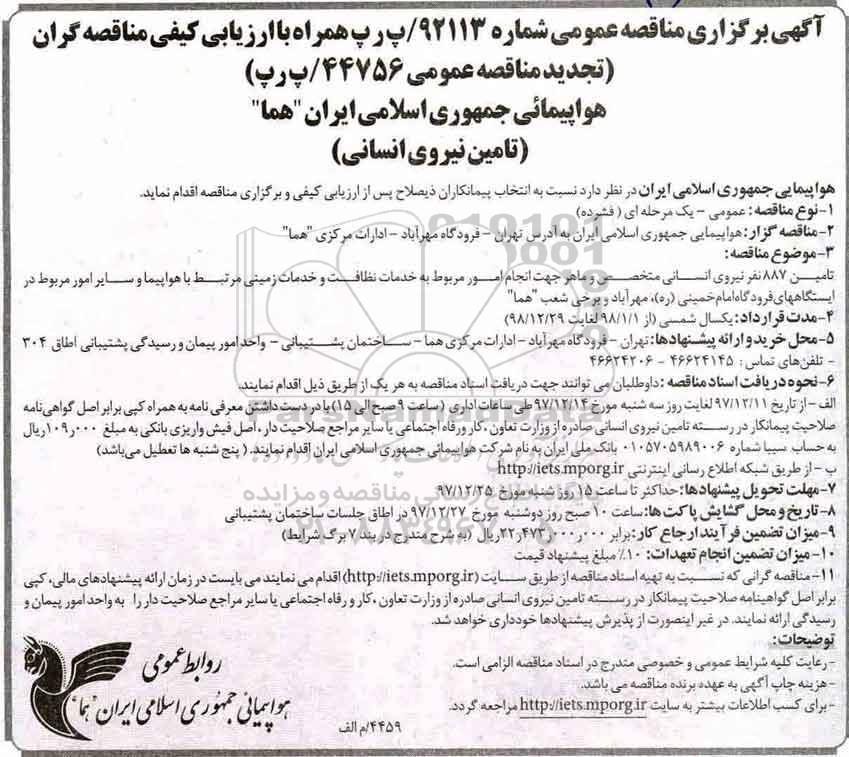 آگهی برگزاری مناقصه عمومی شماره ۹۲۱۱۳/پ رپ همراه با ارزیابی کیفی مناقصه گران
(تجدید مناقصه عمومی ۴۴۷۵۶/پ رپ)
هواپیمائی جمهوری اسلامی ایران "هما"
(تامین نیروی انسانی)
هواپیمایی جمهوری اسلامی ایران در نظر دارد نسبت به انتخاب پیمانکاران ذیصلاح پس از ارزیابی کیفی و برگزاری مناقصه اقدام نماید.
۱- نوع مناقصه: عمومی - یک مرحله ای (فشرده)
۲- مناقصه گزار: هواپیمایی جمهوری اسلامی ایران به آدرس تهران - فرودگاه مهرآباد - ادارات مرکزی "هما"
۳- موضوع مناقصه:
تامین ۸۸۷ نفر نیروی انسانی متخصص و ماهر جهت انجام امور مربوط به خدمات نظافت و خدمات زمینی مرتبط با هواپیما و سایر امور مربوط در
ایستگاههای فرودگاه امام خمینی (ره)، مهرآباد و برخی شعب "هما"
۴- مدت قرارداد: یکسال شمسی (از ۹۸/۱/۱ لغایت ۹۸/۱۲/۲۹)
۵- محل خرید و ارائه پیشنهادها: تهران - فرودگاه مهرآباد - ادارات مرکزی هما - ساختمان پشتیبانی - واحد امور پیمان و رسیدگی پشتیبانی اطاق ۳۰۴
- تلفن‌های تماس: ۴۶۶۲۴۱۴۵ - ۴۶۶۲۴۲۰۶
۶- نحوه دریافت اسناد مناقصه: داوطلبان می توانند جهت دریافت اسناد مناقصه به هر یک از طریق ذیل اقدام نمایند.
الف - از تاریخ ۹۷/۱۲/۱۱ لغایت روز سه شنبه مورخ ۹۷/۱۲/۱۴ طی ساعات اداری (ساعت ۹ صبح الی ۱۵) با در دست داشتن معرفی نامه به همراه کپی برابر اصل گواهی‌نامه
صلاحیت پیمانکار در رسته تامین نیروی انسانی صادره از وزارت تعاون، کار و رفاه اجتماعی یا سایر مراجع صلاحیت دار، اصل فیش واریزی بانکی به مبلغ ۱۰۹٫۰۰۰ ریال
به حساب سیبا شماره ۰۱۰۵۷۰۵۹۸۹۰۰۶ بانک ملی ایران به نام شرکت هواپیمائی جمهوری اسلامی ایران اقدام نمایند. (پنج شنبه ها تعطیل می‌باشد)
ب - از طریق شبکه اطلاع رسانی اینترنتی http://iets.mporg.ir
۷- مهلت تحویل پیشنهادها: حداکثر تا ساعت ۱۵ روز شنبه مورخ ۹۷/۱۲/۲۵
۸- تاریخ و محل گشایش پاکت ها: ساعت ۱۰ صبح روز دوشنبه مورخ ۹۷/۱۲/۲۷ در اطاق جلسات ساختمان پشتیبانی
۹- میزان تضمین فرآیند ارجاع کار: برابر ۲۲٫۴۷۳٫۰۰۰٫۰۰۰ ریال (به شرح مندرج در بند ۷ برگ شرایط)
۱۰- میزان تضمین انجام تعهدات: ۱۰٪ مبلغ پیشنهاد قیمت
۱۱- مناقصه گرانی که نسبت به تهیه اسناد مناقصه از طریق سایت (http://iets.mporg.ir) اقدام می نمایند می بایست در زمان ارائه پیشنهادهای مالی، کپی
برابر اصل گواهینامه صلاحیت پیمانکار در رسته تامین نیروی انسانی صادره از وزارت تعاون، کار و رفاه اجتماعی یا سایر مراجع صلاحیت دار را به واحد امور پیمان و
رسیدگی ارائه نمایند. در غیر اینصورت از پذیرش پیشنهادها خودداری خواهد شد.
توضیحات:
- رعایت کلیه شرایط عمومی و خصوصی مندرج در اسناد مناقصه الزامی است.
- هزینه چاپ آگهی به عهده برنده مناقصه می باشد.
- برای کسب اطلاعات بیشتر به سایت http://iets.mporg.ir مراجعه گردد.
۴۴۵۹/م الف
روابط عمومی
هواپیمائی جمهوری اسلامی ایران "هما"